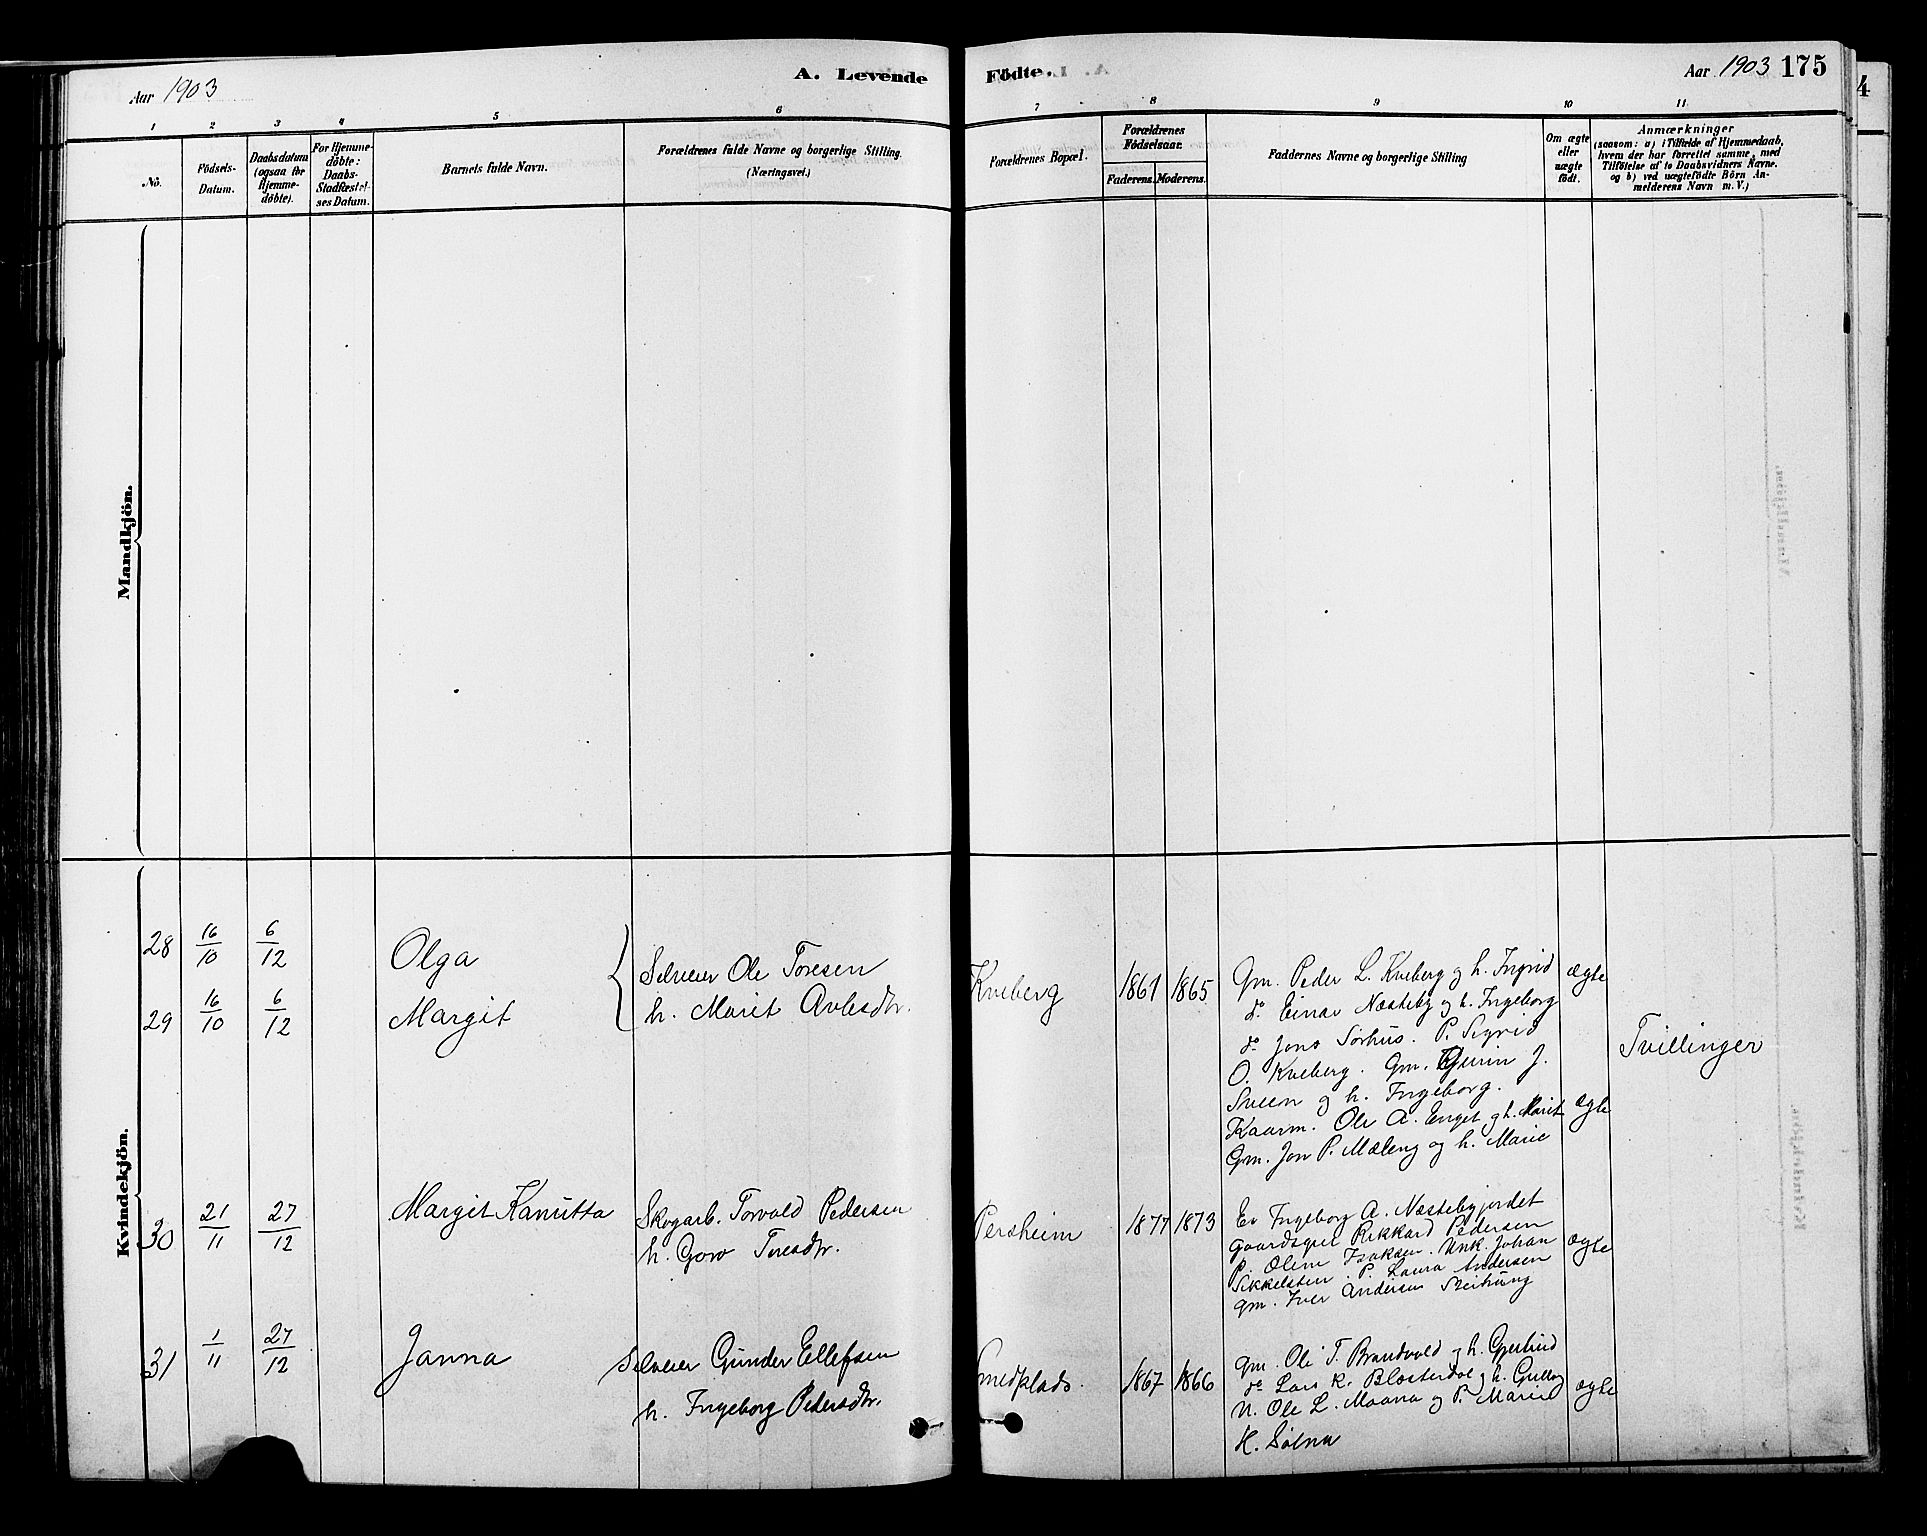 Aar 1903
A. Levende
Födte.
Aar 1903 175
1 2 3 4 5 6 7 8 9 10 11
No.
Födsels-
Datum.
Daabsdatum
(ogsaa for
Hjemme-
döbte).
For Hjemme-
döbte:
Daabs-
Stadfæstel-
ses Datum.
Barnets fulde Navn.
Forældrenes fulde Navne og borgerlige Stilling.
(Næringsvei.)
Forældrenes Bopæl.
Forældrenes
Födselsaar.
Faderens. Moderens.
Faddernes Navne og borgerlige Stilling
Om ægte
eller
uægte
födt.
Anmærkninger
(saasom: a) i Tilfælde af Hjemmedaab,
hvem der har forrettet samme, med
Tilföielse af to Daabsvidners Navne.
og b) ved uægtefödte Börn An-
melderens Navn m. V.)
Mandkjön.
Kvindekjön.
28 16/10 6/12 Olga
29 16/10 6/12 Margit
Selveier Ole Toresen
h. Marit Avlesdtr.
Kveberg 1861 1865
Gm. Peder L. Kveberg og h. Ingrid
do Einar Næsteby og h. Ingeborg
do Jons Sørhus. P. Sigrid
O. Kveberg. Gm. J.
Sveen og h. Ingeborg.
Kaarm. Ole A. Enget og h. Marit
Gm. Jon P. Mæleng og h. Marie
ægte
ægte
Tvillinger
30 21/11 27/12 Margit Kanutta
Skogarb. Torvald Pedersen
h. Goro Toresdtr.
Persheim 1877 1873
En Ingeborg A. Næstebyjordet
Gaardsgut Rikkard Pedersen
P. Oline Isaksen. Unk. Johan
Sikkelsten. P. Laura Andersen
gm. Iver Andersen
ægte
31 1/11 27/12 Janna
Selveier Gunder Ellefsen
h. Ingeborg Pedersdtr.
Smedplads. 1867 1866
gm. Ole T. Brandvold og h. Gjertrud
do Lars K. Blæsterdal og h. Gullog
U. Ole L. Moana og P. Marie
H. Sølna
ægte
4